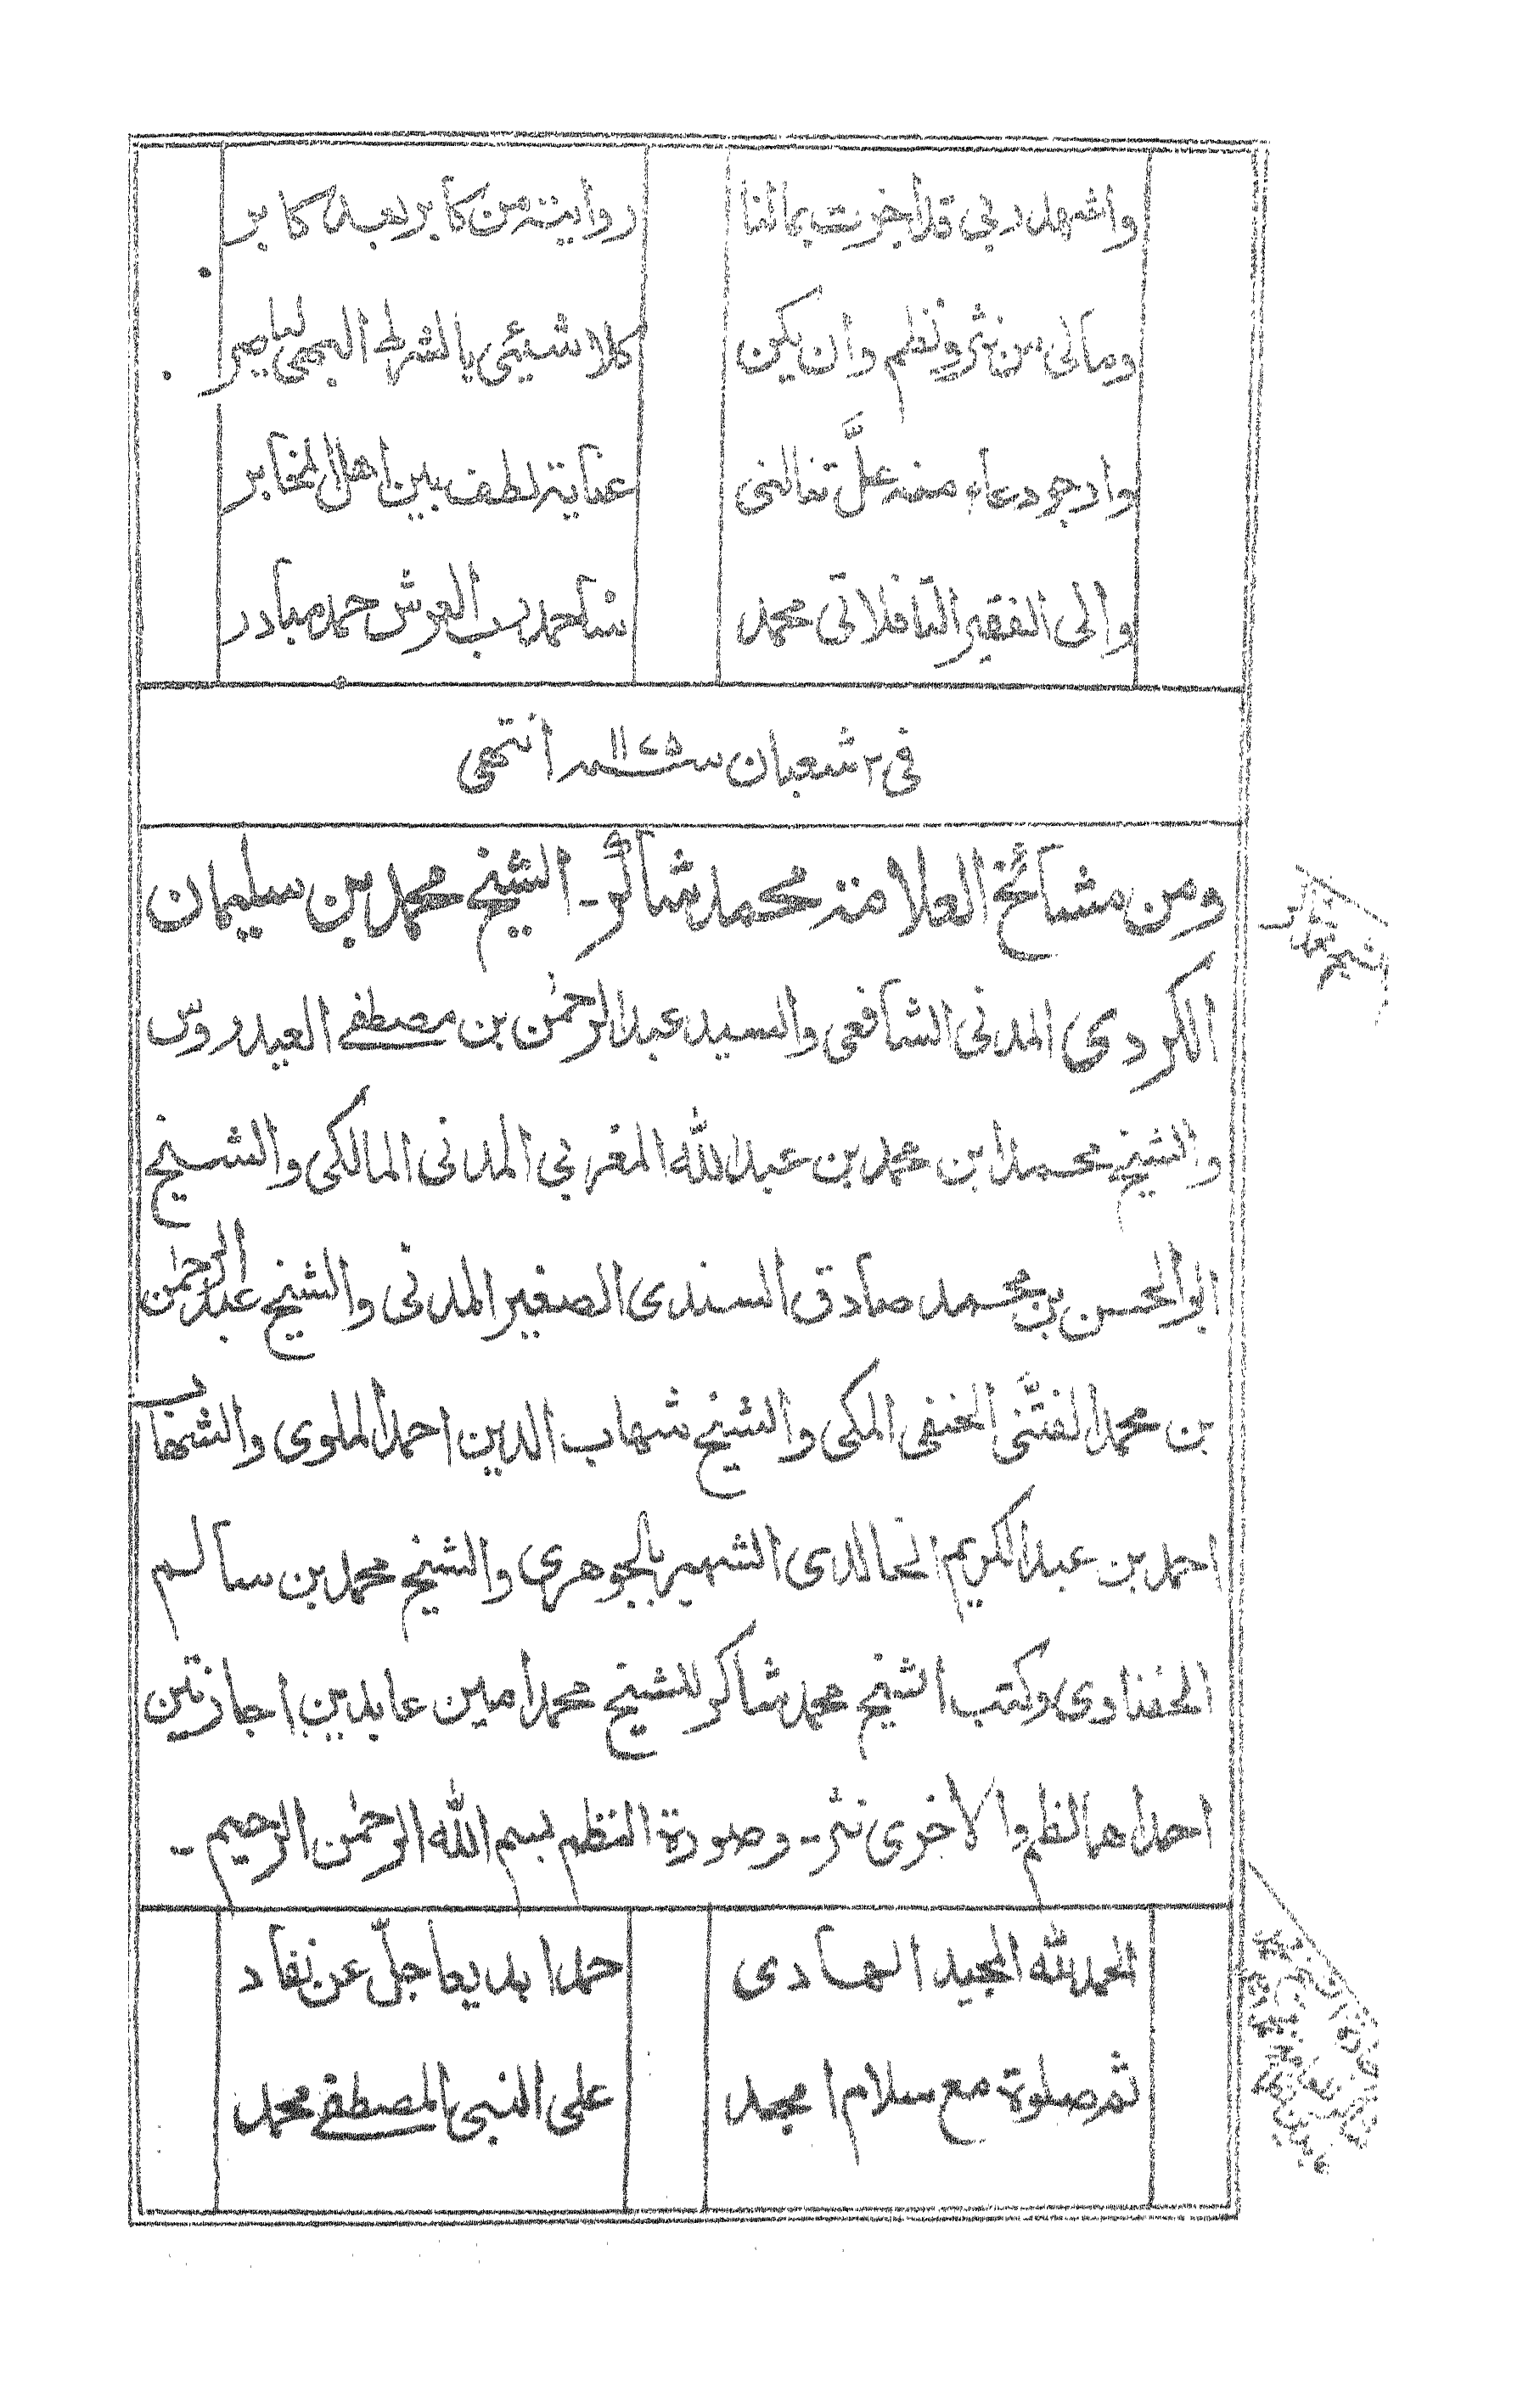 واشهد ربي قد اجزت بمالنا روايته من كابر بعد كابر
ومالي من نثر ونظم وان يكن كلا شيئي بالشرط البهي لماهر
وارجو دعاء منه علّ تنالني عناية لطف بين اهل المخابر
واني الفقير التافلاتي محمد شاحمد رب العرش حمد مبادر
في ٢ شعبان سنة ١١٧٥ انتهى
ومن مشائخ العلامة محمد شاكر - الشيخ محمد بن سليمان
الكردي المدني الشافعي والسيد عبد الرحمٰن بن مصطفے العيدروس
والشيخ محمد ابن محمد بن عبد الله المغربي المدني المالكي والشيخ
ابو الحسن بن محمد صادق السندى الصغير المدني والشيخ عبد الرحمٰن
بن محمد الفتّني الحنفي المكي والشيخ شهاب الدين احمد الملوى والشهاب
احمد بن عبد الكريم الخالدى الشهير بالجوهري والشيخ محمد بن سالم
الحفناوى وكتب الشيخ محمد شاكر للشيخ محمد امين عابدين اجازتين
احداهما نظم والاخرى نثر - وصورة النظم بسم الله الرحمٰن الرحيم -
الحمد لله المجيد الهادى حمدا بديعا جلّ عن نفاد
ثم صلوة مع سلام امجد على النبي المصطفے محمد